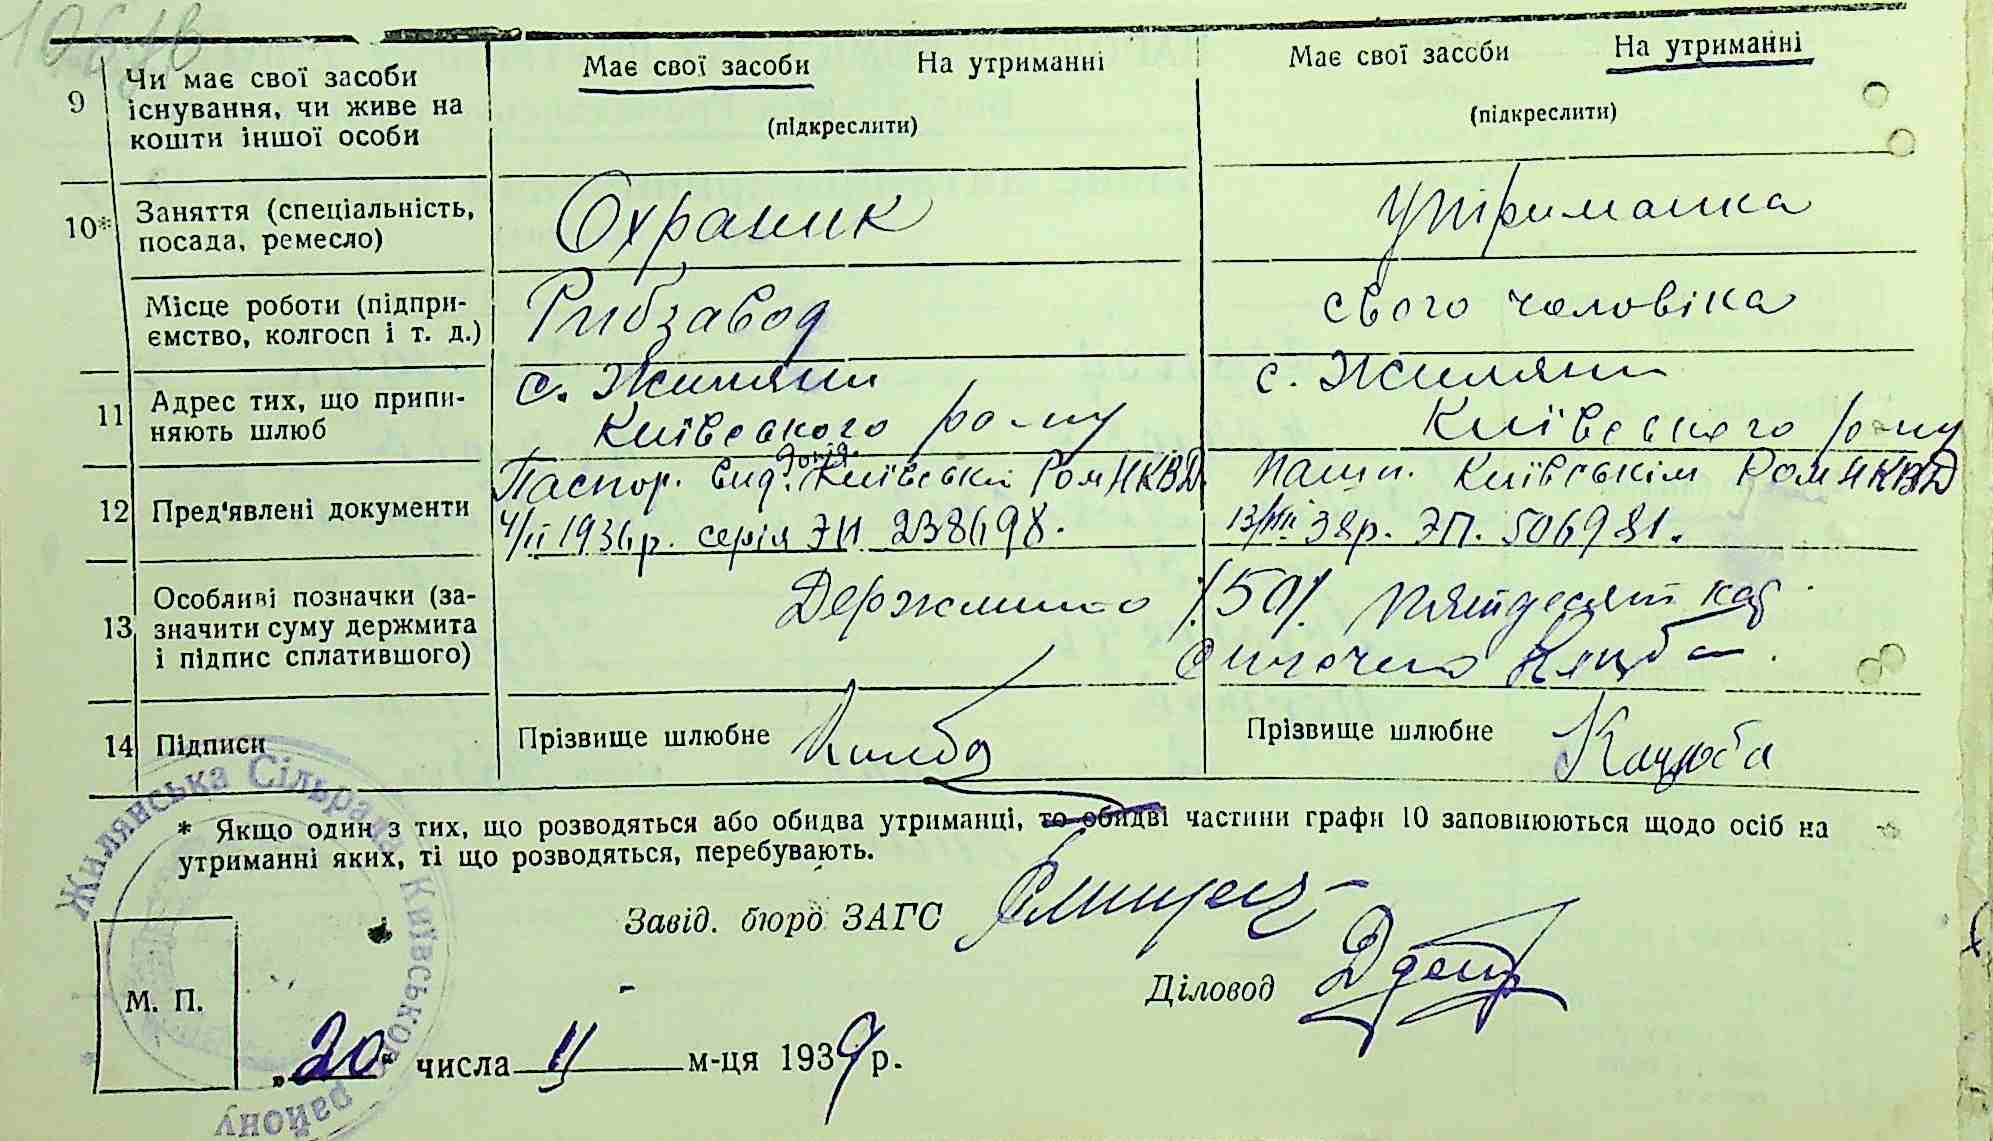 9 Чи має свої засоби існування, чи живе на кошти іншої особи
Має свої засоби На утриманні
(підкреслити)
Має свої засоби На утриманні
(підкреслити)
10* Заняття (спеціальність, посада, ремесло)
Охраник
утриманка
Місце роботи (підприємство, колгосп і т. д.)
Рибзавод
свого чоловіка
11 Адрес тих, що припиняють шлюб
с. Жиляни
Київського р-ну
с. Жиляни
Київського р-ну
12 Пред'явлені документи
Паспор. вид. Київськи РомНКВД
1936р. серія ЭИ
Пашп. Київськім РомНКВД
38р. ЭП. 506981.
13 Особливі позначки (зазначити суму держмита і підпис сплатившого)
Держмито 50 пятдесят
14 Підписи
Прізвище шлюбне
Прізвище шлюбне Кацюба
* Якщо один з тих, що розводяться або обидва утриманці, то обидві частини графи 10 заповнюються щодо осіб на
утриманні яких, ті що розводяться, перебувають.
Завід. бюро ЗАГС
Діловод
М. П.
„20“ числа 11 м-ця 1939 р.
Жилянська Сільрада Київського району